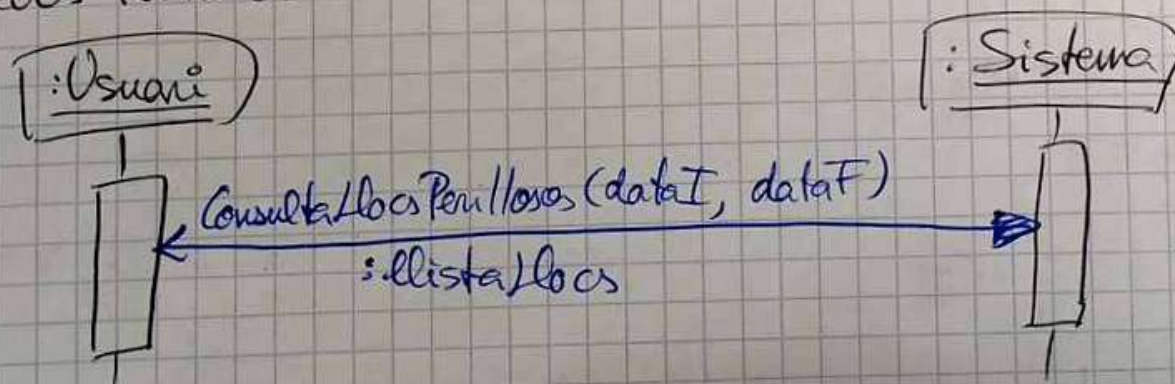 :Usuari
:Sistema
ConsultaLlocsPerillosos(dataI, dataF)
:llistaLlocs